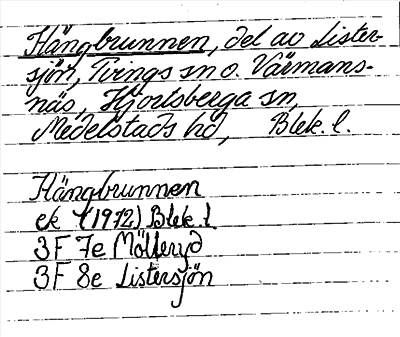 Hängbrunnen, del av Lister-
sjön, Tvings sn o. Värmans-
näs, Hjortsberga sn,
Medelstads hd, Blek. l.
Hängbrunnen
ek (1972) Blek. l.
3F 7e Mölleryd
3F 8e Listersjön